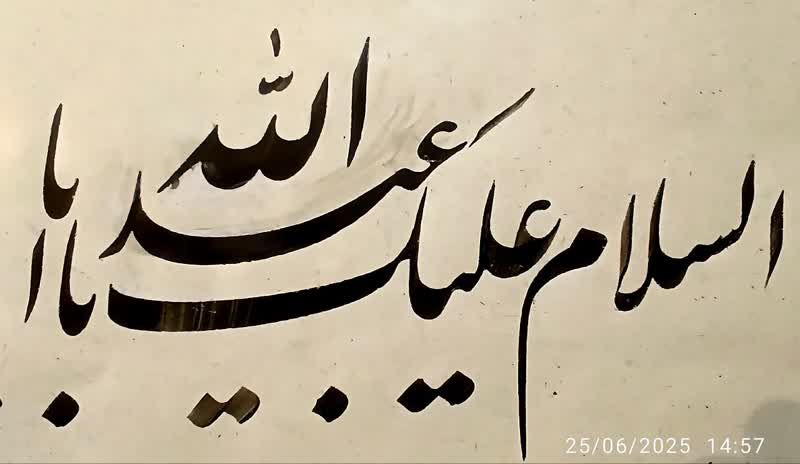 السلام علیک یا ابا عبد الله
25/06/2025 14:57